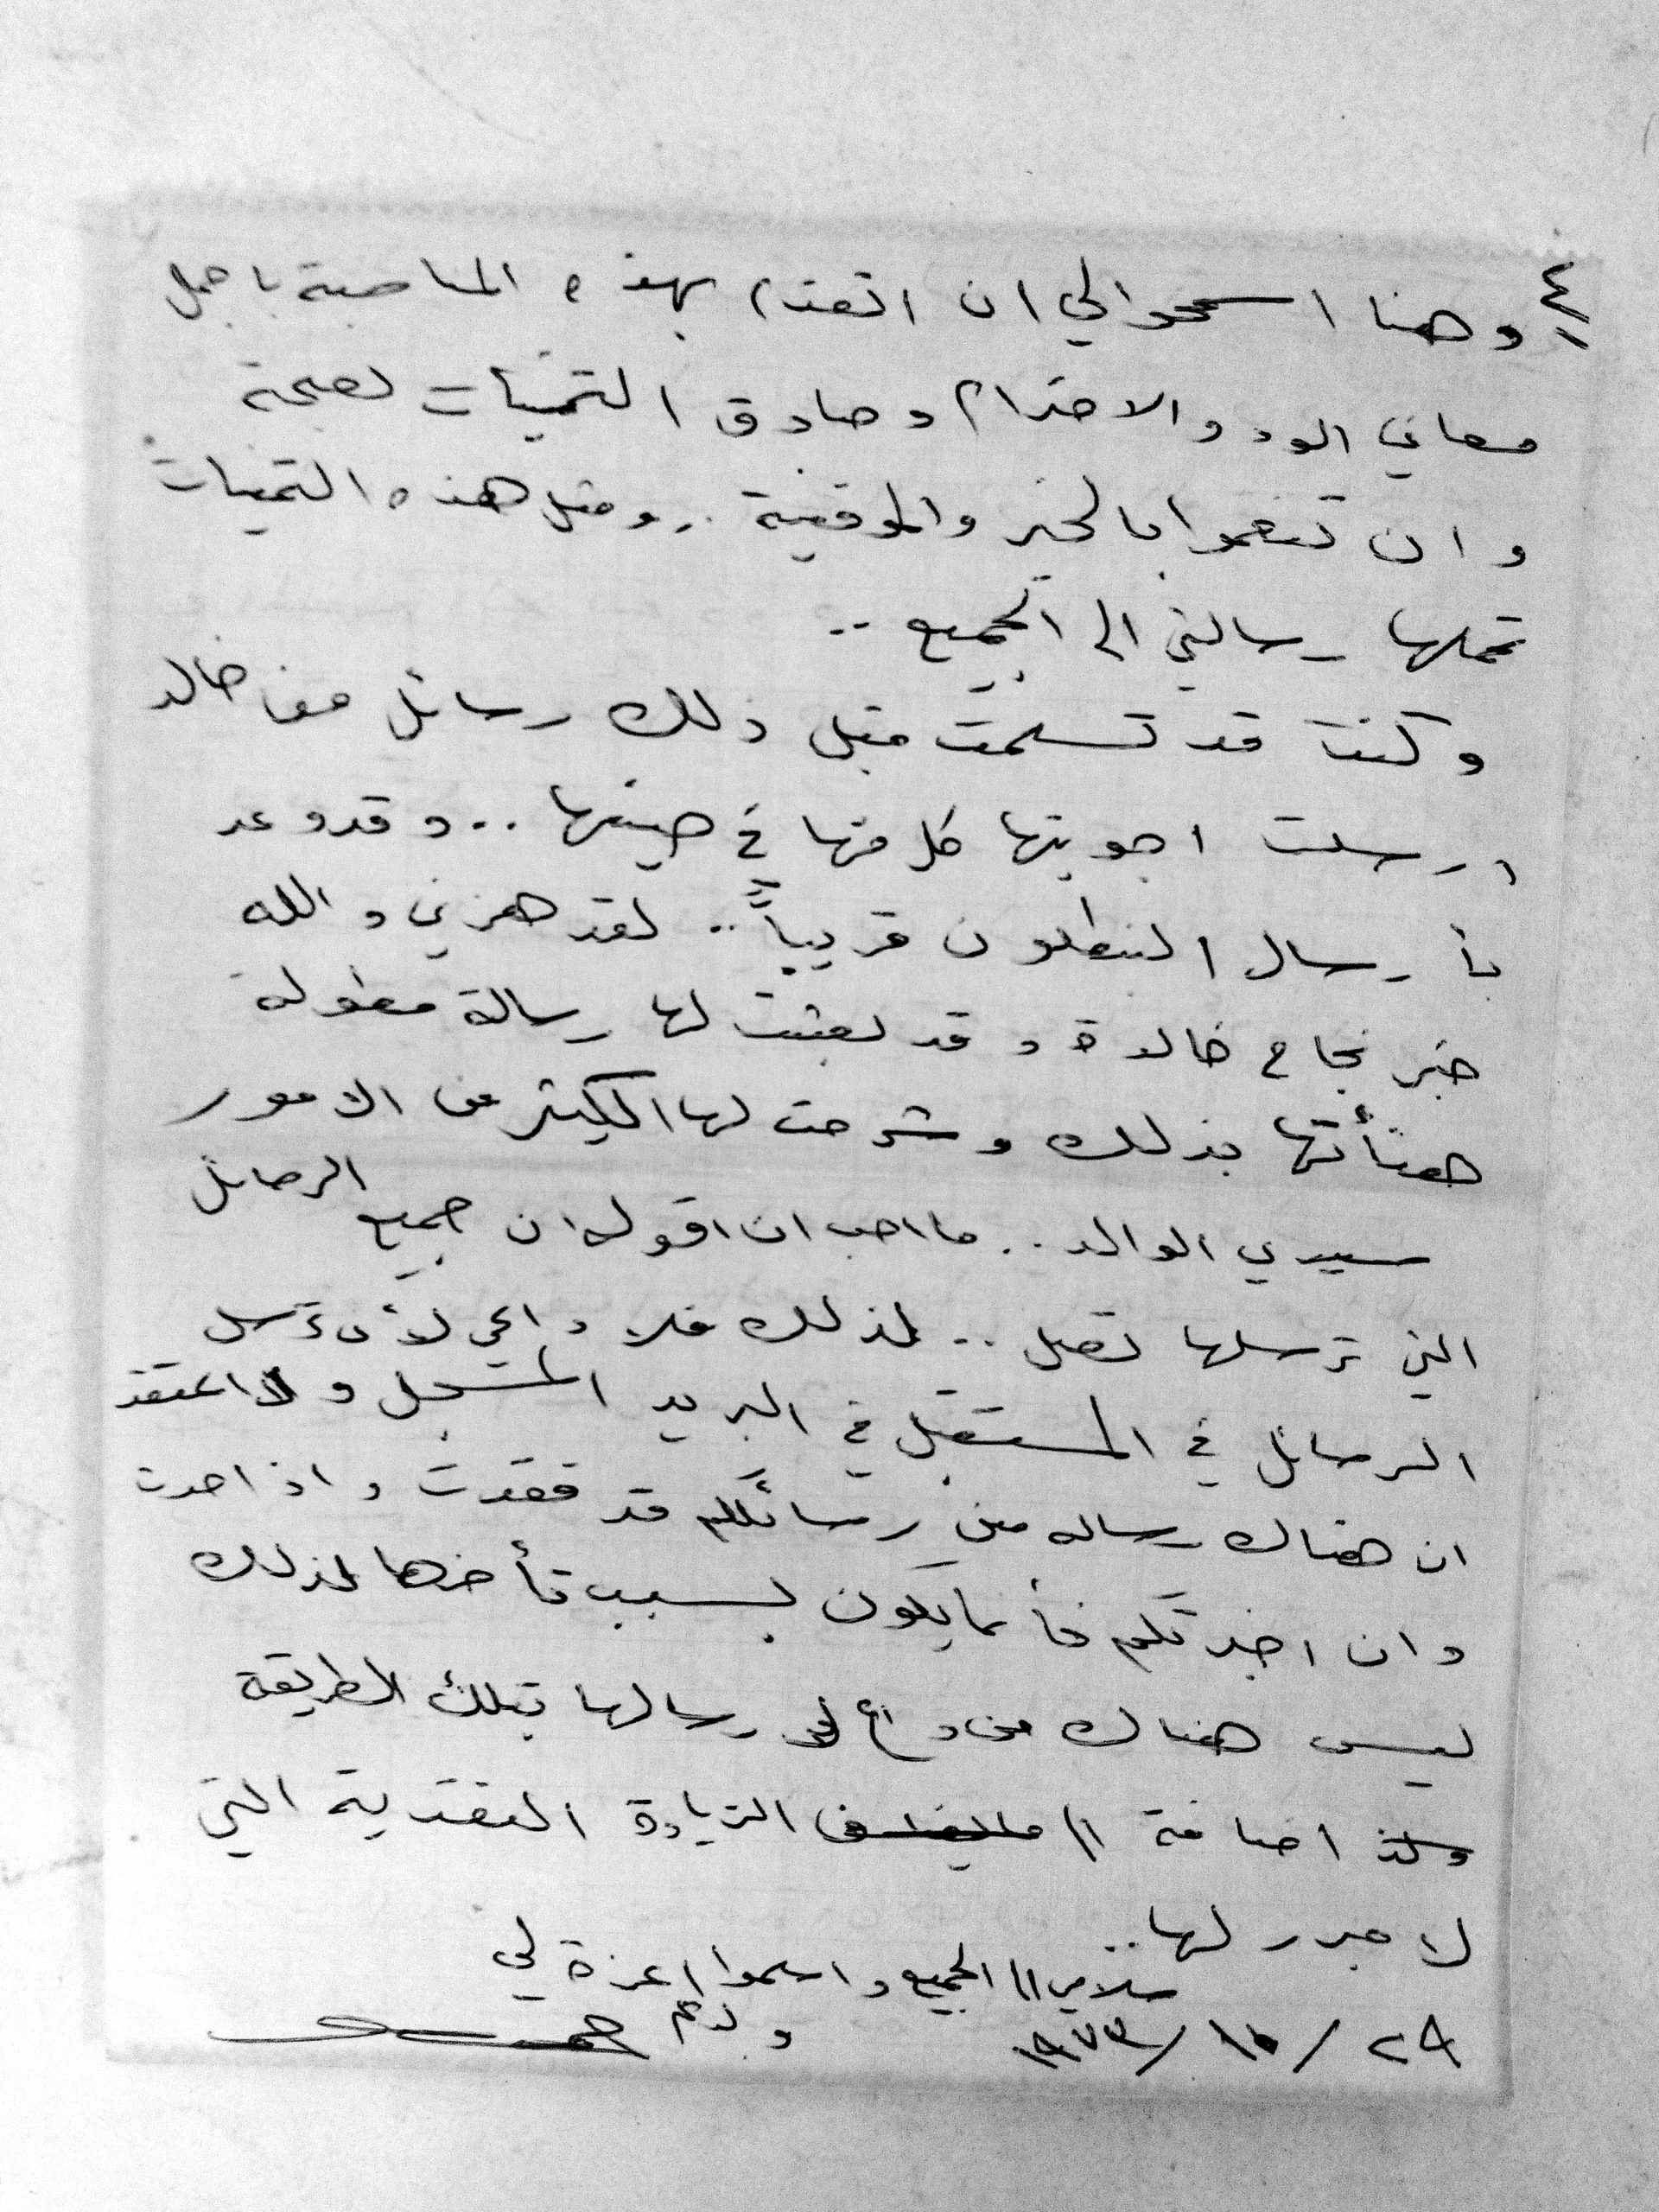 ٤ وهنا اسمحوا لي ان اتقدم بهذه المناسبة باجمل
معاني الود والاحترام وصادق التمنيات لصحة
وان تنعموا بالخير والموفقية .. ومثل هذه التمنيات
تحملها رسالتي الى الجميع ..
وكنت قد تسلمت قبل ذلك رسائل من خالد
وارسلت اجوبتها كل منها في حينها .. وقد وعد
بأرسال البنطلون قريباً .. لقد هزني والله
خبر نجاح خالدة وقد بعثت لها رسالة مطولة
هنأتها بذلك وشرحت لها الكثير من الامور
سيدي الوالد .. ما احب ان اقوله ان جميع الرسائل
التي ترسلها تصل .. لذلك فلا داعي لأن ترسل
الرسائل في المستقبل في البريد المسجل ولا اعتقد
ان هناك رساله من رسائلكم قد فقدت واذا حدث
وان اخبرتكم فأنما يكون بسبب تأخرها لذلك
ليس هناك من داع لارسالها بتلك الطريقة
اضافة الى الزيادة النقدية التي
لا مبرر لها ..
سلامي الى الجميع واسلموا اعزة لي
ولدكم
٢٩/١٠/١٩٧٣